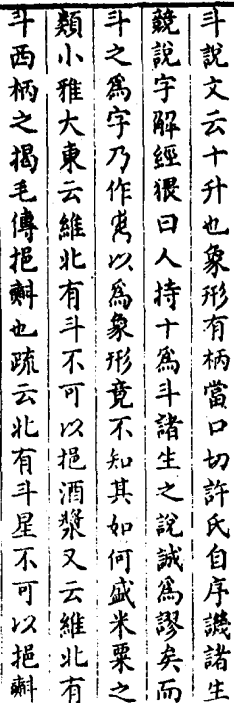 斗說文云十升也象形有柄當口切許氏自序譏諸生
競說字解經猥曰人持十為斗諸生之說誠為謬矣而
斗之為字乃作𠦂以為象形竟不知其如何盛米粟之
類小雅大東云維北有斗不可以挹酒漿又云維北有
斗西柄之揭毛傳挹㪺也疏云北有斗星不可以挹㪺